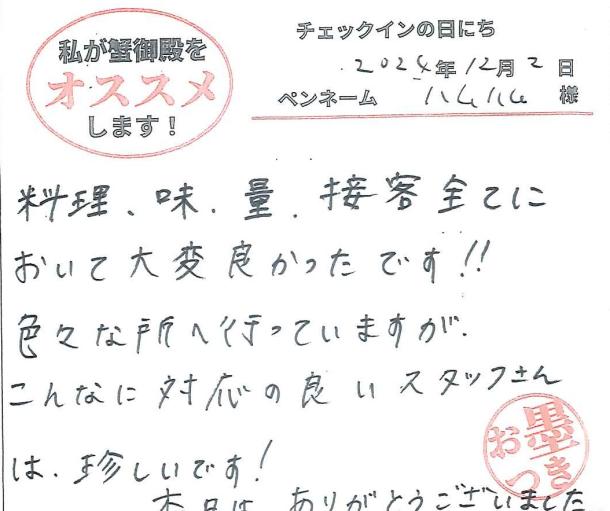 私が蟹御殿を
オススメ
します！
チェックインの日にち
2024年12月2日
ペンネーム ハムハム 様
料理、味、量、接客全てに
おいて大変良かったです!!
色々な所へ行っていますが、
こんなに対応の良いスタッフさん
は、珍しいです！
お墨
つき
本日は ありがとうございました